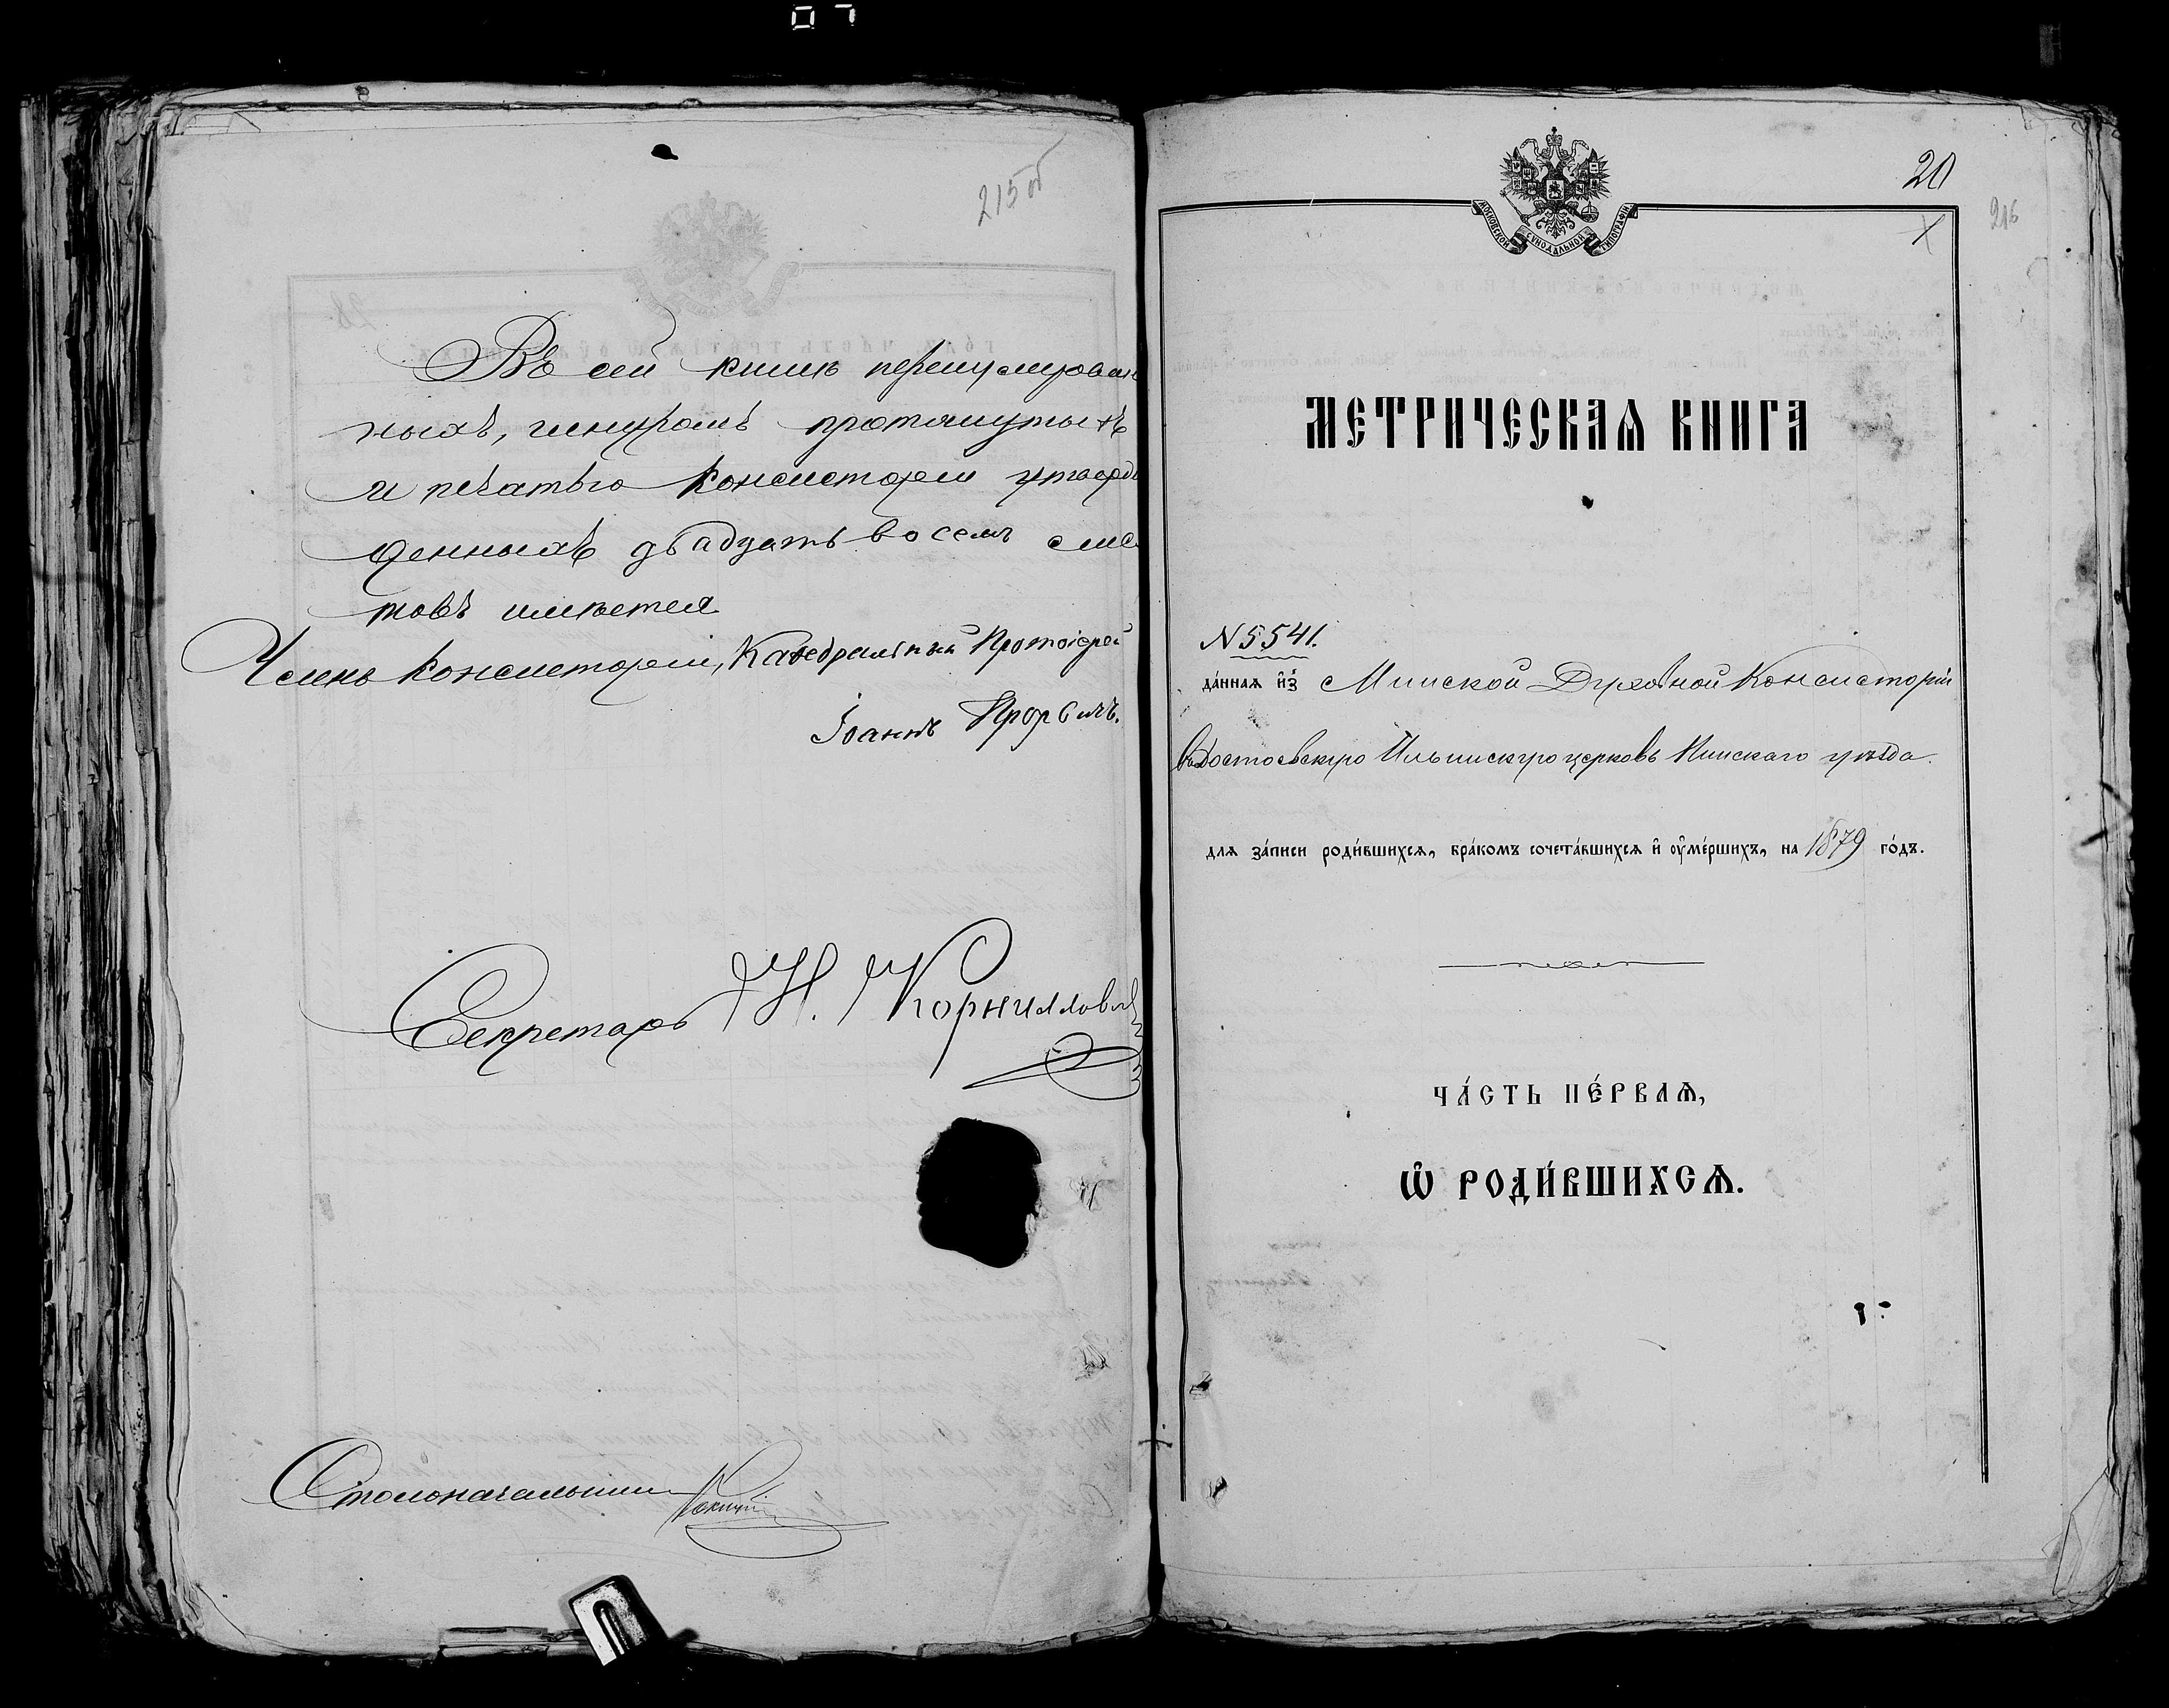 215 об
Въ сей книгѣ перенумерован
ныхъ, шнуромъ протянутыхъ
и печатью Консисторіи утверж
денныхъ двадцать восемь лис
товъ имѣется
Членъ Консисторіи, Каѳедральный Протоіерей
Іоаннъ
Секретарь Н. Корнилов
Столоначальникъ
20
216
МОСКОВСКОЙ СѴНОДАЛЬНОЙ ТИПОГРАФІИ
МЕТРИЧЕСКАѦ КНИГА
N 5541.
да́ннаѧ и҆з̾ Минской Духовной Консисторіи
въ Достоевскую Ильинскую церковь Пинскаго уѣзда.
для за́писи роди́вшихсѧ, бра́комъ сочета́вшихсѧ и҆ ᲂу҆ме́ршихъ, на 1879 го́дъ.
ЧА́СТЬ ПЕ́РВАѦ,
Ѡ҆ РОДИ́ВШИХСѦ.